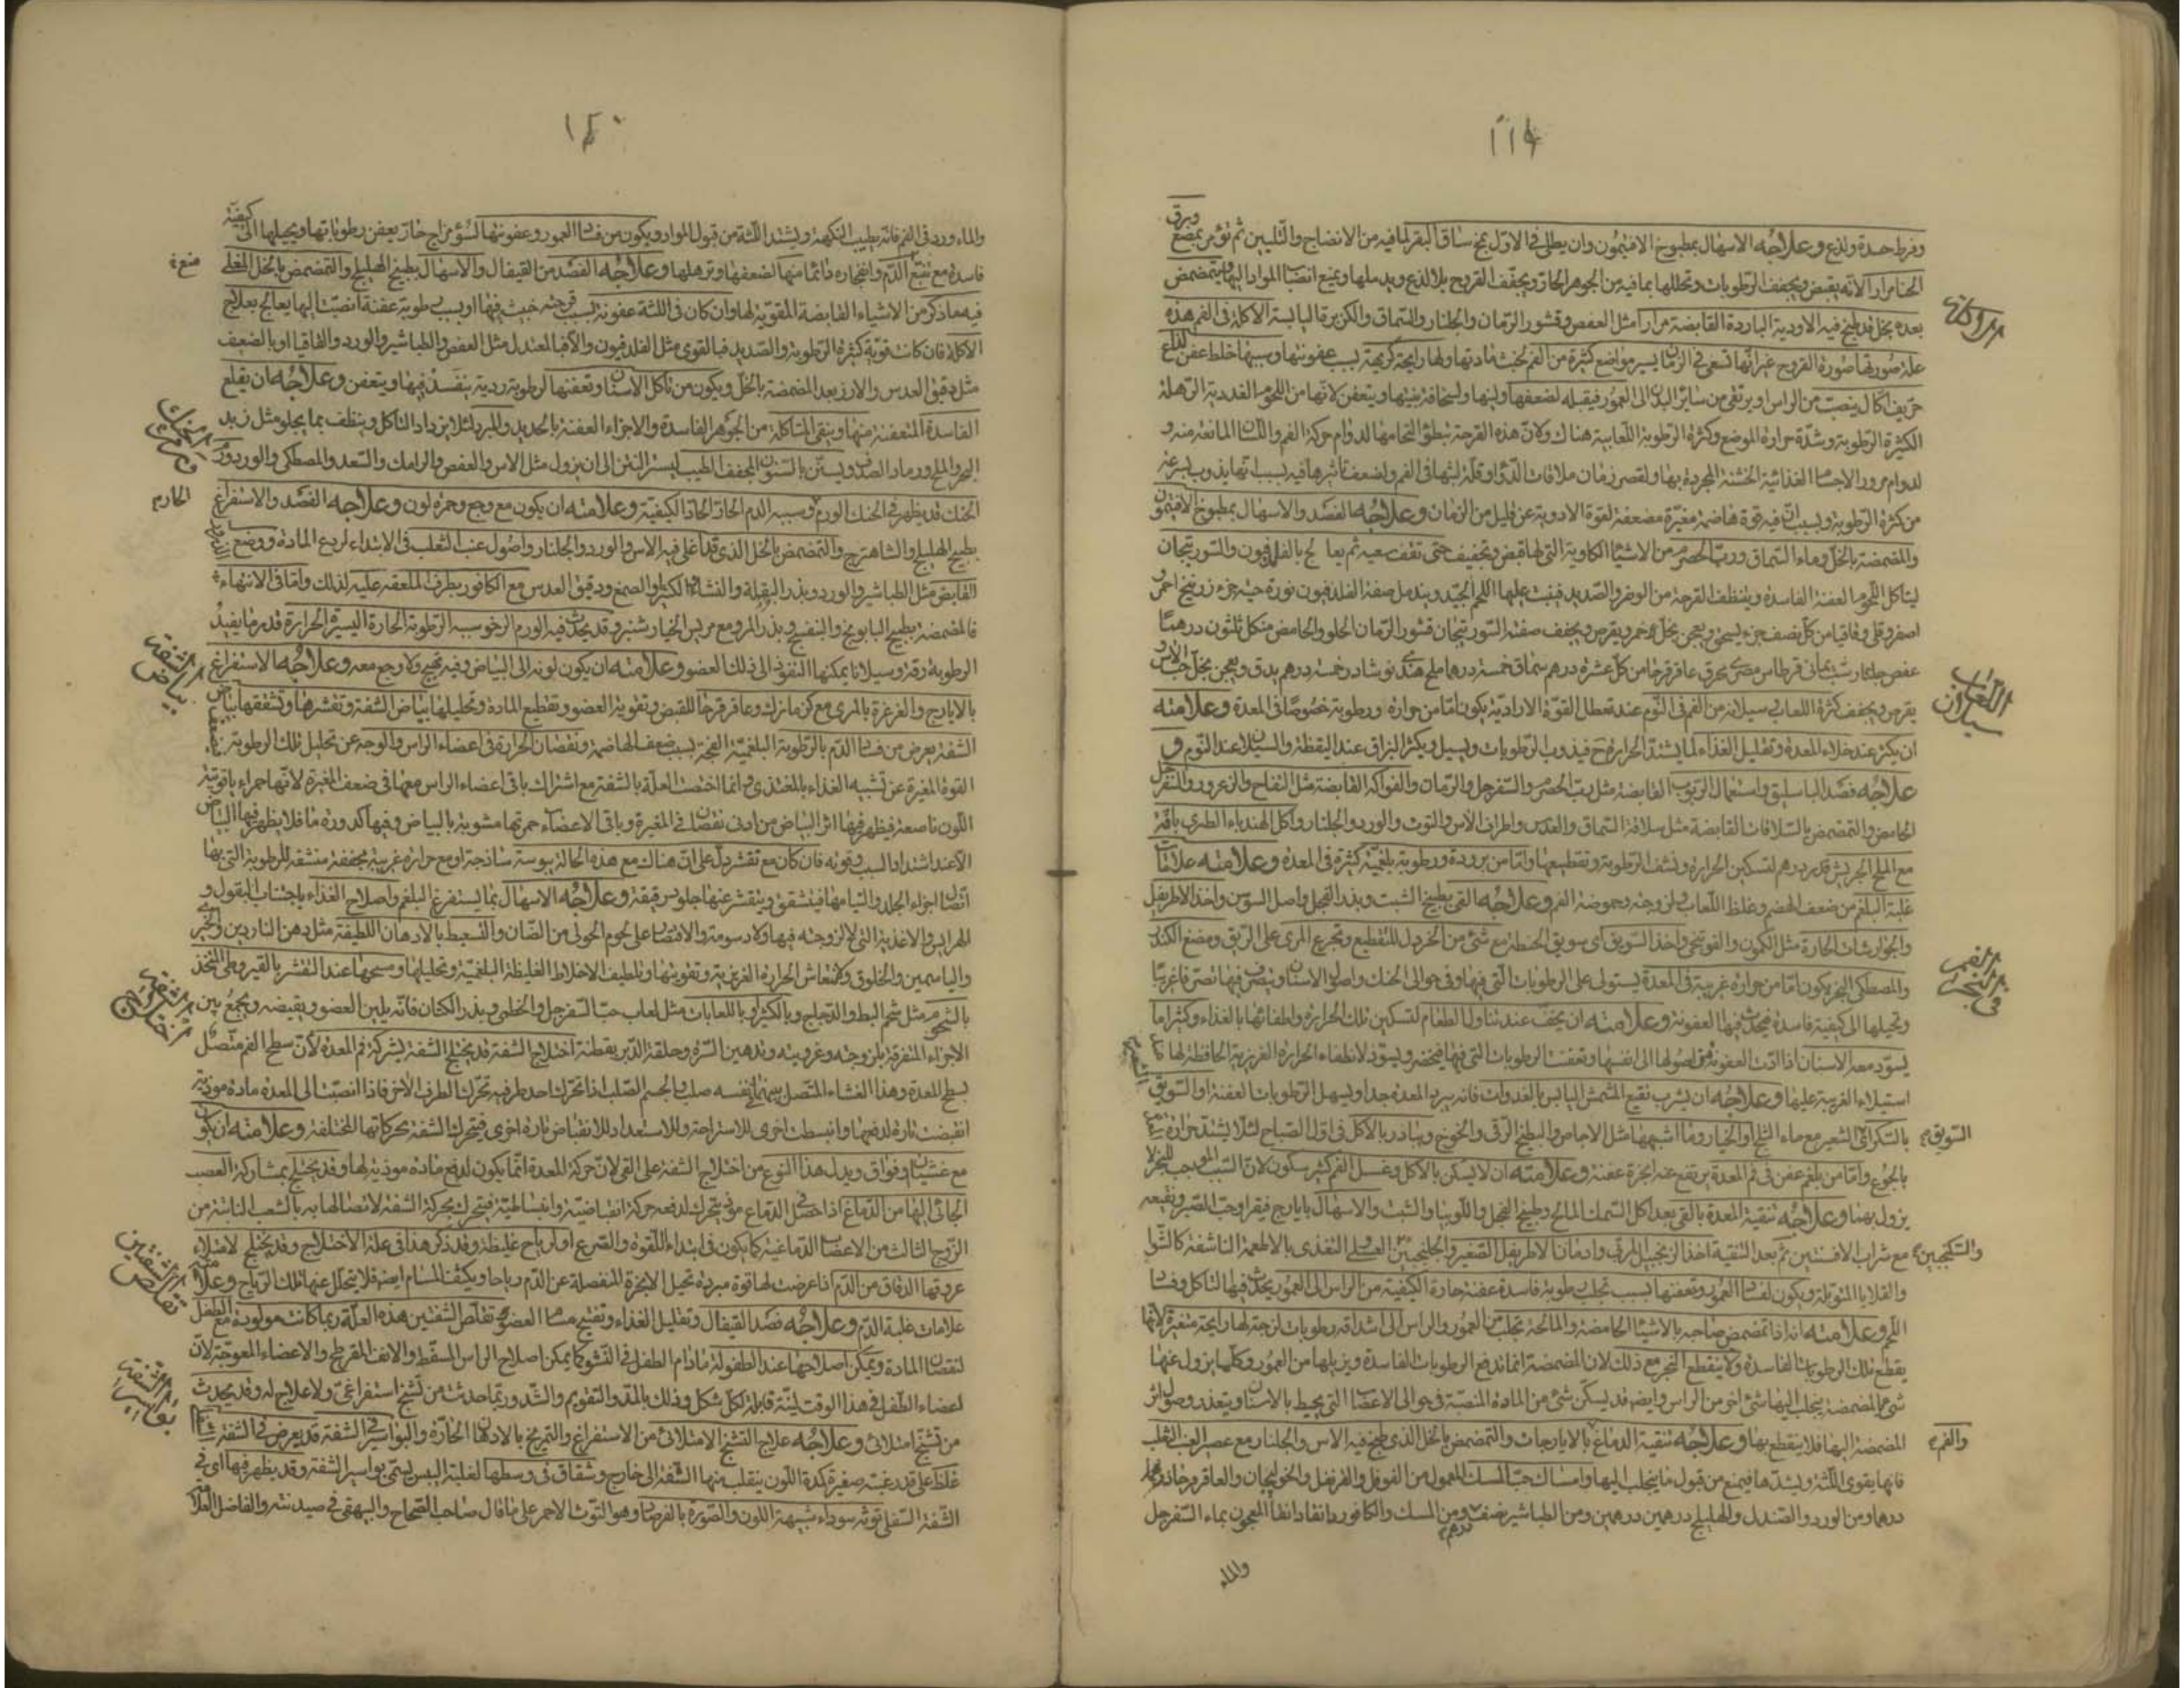 ١١٩
وفرط حدة ولذع وعلاجه الاسهال بمطبوخ الافتيمون وان يطلى فى الاول بمخ ساق البقر لما فيه من الانضاج والتليين ثم يؤمر بمضغ ورق
الحنا مرارا لانه يقبض ويجفف الرطوبات وتحللها بما فيه من الجوهر الحار ويجفف القروح بلا لذع ويدملها ويمنع انصباب المواد اليها ويتمضمض
بعده بخل قد طبخ فيه الادوية الباردة القابضة مرارا مثل العفص وقشور الرمان والجلنار والسماق والكزبرة اليابسة الاكلة فى الفم هذه
علة صورتها صورة القروح غير انها تسعى فى الزمان اليسير مواضع كثيرة من الفم لخبث مادتها ولها رايحة كريهة بسبب عفونتها وسببها خلط عفن لذاع
حريف اكال ينصب من الراس او يرتقى من ساير البدن الى العمور فيقبله لضعفها ولينها ولسخافة بنيتها ويتعفن لانها من اللحوم الغددية الرهلة
الكثيرة الرطوبة وشدة حرارة الموضع وكثرة الرطوبة اللعابية هناك ولان هذه القرحة تبطؤ التحامها لدوام حركة الفم واللسان المانعة منه و
لدوام مرور الاجسام الغذائية الخشنة المجردة بها ولقصر زمان ملاقات الدواء وقلة لبثها فى الفم ولضعف تاثيرها فيه بسبب انها يذوب بسرعة
من كثرة الرطوبة وبسبب ان فيه قوة هاضمة مغيرة مضعفة لقوة الادوية عن قليل من الزمان وعلاجه الفصد والاسهال بمطبوخ الافتيمون
والمضمضة بالخل وماء السماق ورب الحصرم من الاشياء الكاوية التى لها قبض وتجفيف حتى تقف سعيه ثم يعالج بالفلدفيون والسورتيجان
ليتاكل اللحوم العفنة الفاسدة وينظف القرحة من الوضر والصديد فينبت عليها اللحم الجيد ويندمل صفة الفلدفيون نورة حية جزء زرنيخ احمر و
اصفر وقلى واقاقيا من كل نصف جزء يسحق ويعجن بخل خمر ويقرص ويجفف صفة السورتيجان قشور الرمان الحلو والحامض من كل ثلثون درهما
عفص جلنار شب يمانى قرطاس مصرى محرق عاقرقرحا من كل عشرة درهم سماق خمسة درهم ملح هندى نوشادر خمسة درهم يدق ويعجن بخل حب الاس و
يقرص ويجفف كثرة اللعاب وسيلانه من الفم فى النوم عند تعطل القوة الارادية يكون اما من حرارة ورطوبة خصوصا فى المعدة وعلامته
ان يكثر عند خلاء المعدة وتقليل الغذاء لما يشتد الحرارة ح فيذوب الرطوبات ويسيل ويكثر البزاق عند اليقظة والسيلان عند النوم و
علاجه فصد الباسليق واستعمال الربوب القابضة مثل رب الحصرم والسفرجل والرمان والفواكه القابضة مثل التفاح والزعرور والسفرجل
الحامض والتمضمض بالسلاقات القابضة مثل سلاقة السماق والعدس واطراف الاس والتوت والورد والجلنار واكل الهندباء الطرى باقة
مع الملح الجريش قدر درهم لتسكين الحرارة ونشف الرطوبة وتقطيعها واما من برودة ورطوبة بلغمية كثيرة فى المعدة وعلامته علامات
غلبة البلغم من ضعف الهضم وغلظ اللعاب ولزوجته وحموضة الفم وعلاجه القى بطبيخ الشبت وبذر الفجل واصل السوسن واخذ الاطريفل
والجوارشات الحارة مثل الكمون والفوتنجى واخذ السويق اى سويق الحنطة مع شئ من الخردل للتقطيع وتجرع المرى على الريق ومضغ الكندر
والمصطكى البخر يكون اما من حرارة غريبة فى المعدة يستولى على الرطوبات التى فيها وفى حوالى الحنك واصول الاسنان ويتصرف فيها تصرفا غريبا
وتحيلها الى كيفية فاسدة فيحدث فيها العفونة وعلامته ان يخف عند تناول الطعام لتسكين تلك الحرارة ولطفائها بالغذاء وكثيرا ما
يسود معه الاسنان اذا ادت العفونة من اصولها الى انفسها وتعفنت الرطوبات التى فيها فيخضر ويسود لانطفاء الحرارة الغريزية الحافظة لها
استيلاء الغريبة عليها وعلاجه ان يشرب نقيع المشمش اليابس بالغدوات فانه يبرد المعدة جدا ويسهل الرطوبات العفنة او السويق
بالسكر اى الشعير مع ماء الثلج او الخيار وما اشبهها مثل الاجاص والبطيخ الرقى والخوخ ويبادر بالاكل فى اول الصباح لئلا يشتد حرارة
بالجوع واما من بلغم عفن فى فم المعدة يرتفع عنه ابخرة عفنة وعلامته ان لا يسكن بالاكل وغسل الفم كثير سكون لان السبب الموجب للبخر لا
يزول بهما وعلاجه تنقية المعدة بالقى بعد اكل السمك المالح وطبيخ الفجل واللوبيا والشبت والاسهال بايارج فيقرا وحب الصبر ونقيعه
مع شراب الافسنتين ثم بعد التنقية اخذ الزنجبيل المربى وادمان الاطريفل الصغير والجلنجبين العسلى التغذى بالاطعمة الناشفة كالشوا
والقلايا المتوبلة ويكون لفساد العمور وتعفنها بسبب تجلب رطوبة فاسدة عفنة حادة الكيفية من الراس الى العمور يحدث فيها التاكل وفساد
اللحم وعلامته انه اذا تمضمض صاحبه بالاشياء الحامضة والمالحة تجلب من العمور والراس الى اشداقه رطوبات لزجة لها رايحة متغيرة لانها
يقطع تلك الرطوبات الفاسدة ولا ينقطع البخر مع ذلك لان المضمضة انما تدفع الرطوبات الفاسدة ويزيلها من العمور وكلما يزول عنها
شئ بالمضمضة ينجلب اليها شئ اخر من الراس وايضا قد يسكن شئ من المادة المنصبة فى حوالى الاعصاب التى يحيط بالاسنان ويتعذر وصول اثر
المضمضة اليها فلا ينقطع بها وعلاجه تنقية الدماغ بالايارجات والتمضمض بالخل الذى طبخ فيه الاس والجلنار مع عصير العنب الثعلب
فانها يقوى اللثة ويشدها فيمنع من قبول ما ينجلب اليها وامساك حب المسك المعمول من الفوفل والقرنفل والخولنجان والعاقرقرحا
درهما ومن الورد والصندل والهليلج درهمين درهمين ومن الطباشير نصف درهم ومن المسك والكافور دانقا دانقا المعجون بماء السفرجل
والماء
السويق
والسكنجبين
والفم
سيلان اللعاب
فى بخر الفم
١٢٠
والماء ورد فى الفم فانه يطيب النكهة ويشتد اللثة من قبول المواد ويكون من فساد العمور وعفونتها لسؤ مزاج حار يعفن رطوباتها ويحيلها الى كيفية
فاسدة مع نقيع الدم وانفجاره دائما منها لضعفها وترهلها وعلاجه الفصد من القيفال والاسهال بطبيخ الهليلج والتمضمض بالخل المغلى
فيه ما ذكر من الاشياء القابضة المقوية لها وان كان فى اللثة عفونة بسبب قرحة خبيثة فيها او بسبب رطوبة عفنة انصبت اليها يعالج بعلاج
الاكلة فان كانت قوية كثيرة الرطوبة والصديد فبالقوى مثل الفلدفيون والا فبالمعتدل مثل العفص والطباشير والورد والقاقيا او بالضعيف
مثل دقيق العدس والارز بعد المضمضة بالخل ويكون من تاكل الاسنان وتعفنها لرطوبة ردية يتفسد فيها ويتعفن وعلاجه ان يقلع
الفاسدة المتعفنة منها وينقى المتاكلة من الجوهر الفاسدة والاجزاء العفنة بالحديد والمبرد لئلا يزداد التاكل وينظف بما يجلو مثل زبد
البحر والملح ورماد الصدف ويستن بالسنون المجفف الطيب ليستر النتن الى ان يزول مثل الاس والعفص والرامك والسعد والمصطكى والورد ورم
الحنك قد يظهر فى الحنك الورم وسببه الدم الحار الحاد الكيفية وعلامته ان يكون مع وجع وحمرة لون وعلاجه الفصد والاستفراغ
بطبيخ الهليلج والشاهترج والتمضمض بالخل الذى قد اغلى فيه الاس والورد والجلنار واصول عنب الثعلب فى الابتداء لردع المادة ووضع
القابض مثل الطباشير والورد وبذر البقلة والنشا والكثيرا والصمغ ودقيق العدس مع الكافور بطرف الملعقة عليه لذلك واما فى الانتهاء
فالمضمضة بطبيخ البابونج والبنفسج وبذر المرو مع مريس الخيار شنبر وقد يحدث فيه الورم الرخو سببه الرطوبة الحارة اليسيرة الحرارة قدر ما يفيد
الرطوبة رقة وسيلانا يمكنها النفوذ الى ذلك العضو وعلامته ان يكون لونه الى البياض وفيه تهيج ولا وجع معه وعلاجه الاستفراغ
بالايارج والغرغرة بالمرى مع كزمازك وعاقرقرحا للقبض وتقوية العضو وتقطيع المادة وتحليلها بياض الشفة وتقشرها وتشققها بياض
الشفة يعرض من فساد الدم بالرطوبة البلغمية الفجة بسبب ضعف الهاضمة ونقصان الحرارة فى اعضاء الراس والوجه عن تحليل تلك الرطوبة
القوة المغيرة عن تشبيه الغذاء بالمغتذى وانما اختصت العلة بالشفة مع اشتراك باقى اعضاء الراس معها فى ضعف المغيرة لانها حمراء ياقوتية
اللون ناصعة فيظهر فيها اثر البياض من ادنى نقصان فى المغيرة وباقى الاعضاء حمرتها مشوبة بالبياض وفيها كدورة ما فلا يظهر فيها البياض
الا عند اشتداد السبب وقوته فان كان مع تقشر دل على ان هناك مع هذه الحالة يبوسة ساذجة او مع حرارة غريبة مجففة منشفة للرطوبة التى بها
اتصال اجزاء الجلد والتيامها فيتشقق ويتقشر عنها جلود رقيقة وعلاجه الاسهال بما يستفرغ البلغم واصلاح الغذاء باجتناب البقول و
الهرايس والاغذية التى لا لزوجة فيها ولا دسومة والاقتصار على لحوم الحولى من الضان والتسعيط بالادهان اللطيفة مثل دهن الناردين والخيرى
والياسمين والخلوق لانتعاش الحرارة الغريزية وتقويتها وتلطيف الاخلاط الغليظة البلغمية وتحليلها ومسحها عند التقشر بالقيروطى المتخذ
بالشحوم مثل شحم البط والدجاج وبالكثيرا وباللعابات مثل لعاب حب السفرجل والخطمى وبذر الكتان فانه يلين العضو ويقبضه ويجمع بين
الاجزاء المتفرقة بلزوجته وغرويته وتدهين السرة وحلقة الدبر بقطنة اختلاج الشفة قد يختلج الشفة بشركة فم المعدة لان سطح الفم متصل
بسطح المعدة وهذا الغشاء المتصل بينهما فى نفسه صلب والجسم الصلب اذا تحرك احد طرفيه تحرك الطرف الاخر فاذا انصبت الى المعدة مادة موذية
انقبضت تارة لدفعها وانبسطت اخرى للاستراحة وللاستعداد للانقباض تارة اخرى فيتحرك الشفة بحركاتها المختلفة وعلامته ان يكون
مع غثيان وفواق ويدل هذا النوع من اختلاج الشفة على القى لان حركة المعدة انما يكون لدفع مادة موذية لها وقد يختلج بمشاركة العصب
الجائى اليها من الدماغ اذا حصل فى الدماغ موذ يتحرك لدفعه حركة انقباضية وانبساطية فيتحرك بحركة الشفة لاتصالها به بالشعب النابتة من
الزوج الثالث من الاعصاب الدماغية كما يكون فى ابتداء اللقوة والصرع او لرياح غليظة وقد ذكر هذا فى علة الاختلاج وقد يختلج لامتلاء
عروقها الدقاق من الدم اذا عرضت لها قوة مبردة تحيل الابخرة المنفصلة عن الدم رياحا ويكثف المسام ايضا فلا يتحلل عنها تلك الرياح وعلامته
علامات غلبة الدم وعلاجه فصد القيفال وتقليل الغذاء وتفتيح مسام العضو تقلص الشفتين هذه العلة ربما كانت مولودة مع الطفل
لنقصان المادة ويمكن اصلاحها عند الطفولة ما دام الطفل فى النشو كما يمكن اصلاح الراس المسقط والانف المفرطح والاعضاء المعوجة لان
اعضاء الطفل فى هذا الوقت لينة قابلة لكل شكل وذلك بالمد والتقويم والشد وربما حدثت من تشنج استفراغى ولا علاج له وقد يحدث
من تشنج امتلائى وعلاجه علاج التشنج الامتلائى من الاستفراغ والتمريخ بالادهان الحارة والبواسير فى الشفة قد يعرض فى الشفة
غلظ على قدر عنبة صغيرة كمدة اللون ينقلب منها الشفة الى خارج وشقاق فى وسطها لغلبة اليبس يسمى بواسير الشفة وقد يظهر فيها اى فى
الشفة السفلى توثة سوداء شبيهة اللون والصورة بالفرصاد وهو التوث الاحمر على ما قال صاحب الصحاح والبيهقى فى صيدنته والفاضل العلامة
الحار
بياض الشفة
اختلاج الشفة
تقلص الشفتين
بواسير الشفة